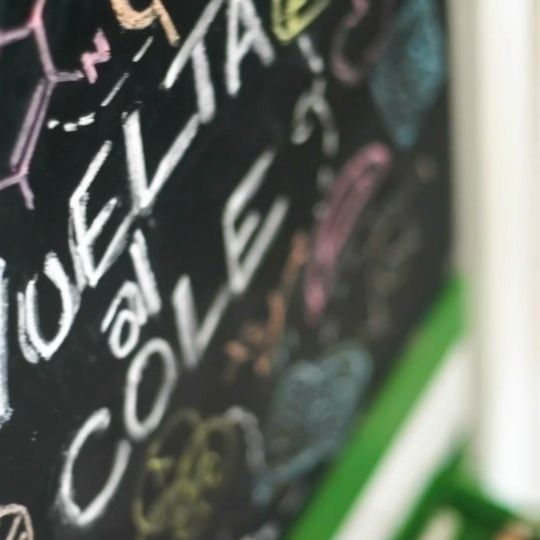 VUELTA
al
COLE